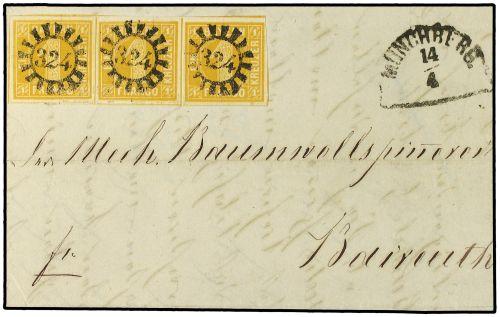 324 324 324
MÜNCHBERG.
14
4
Mech. Baumwollspinnerei
fr.
Baireuth